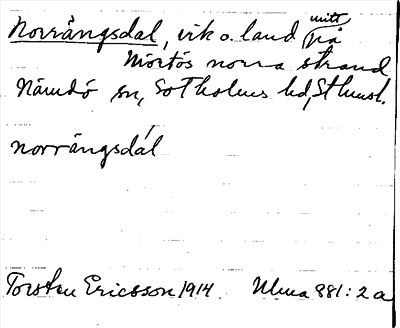 Norrängsdal, vik o. land mitt på
Mörtös norra strand
Nämdö sn, Sotholms hd, Sthmsl.
norrängsdál
Torsten Ericsson 1914. Ulma 881:2a